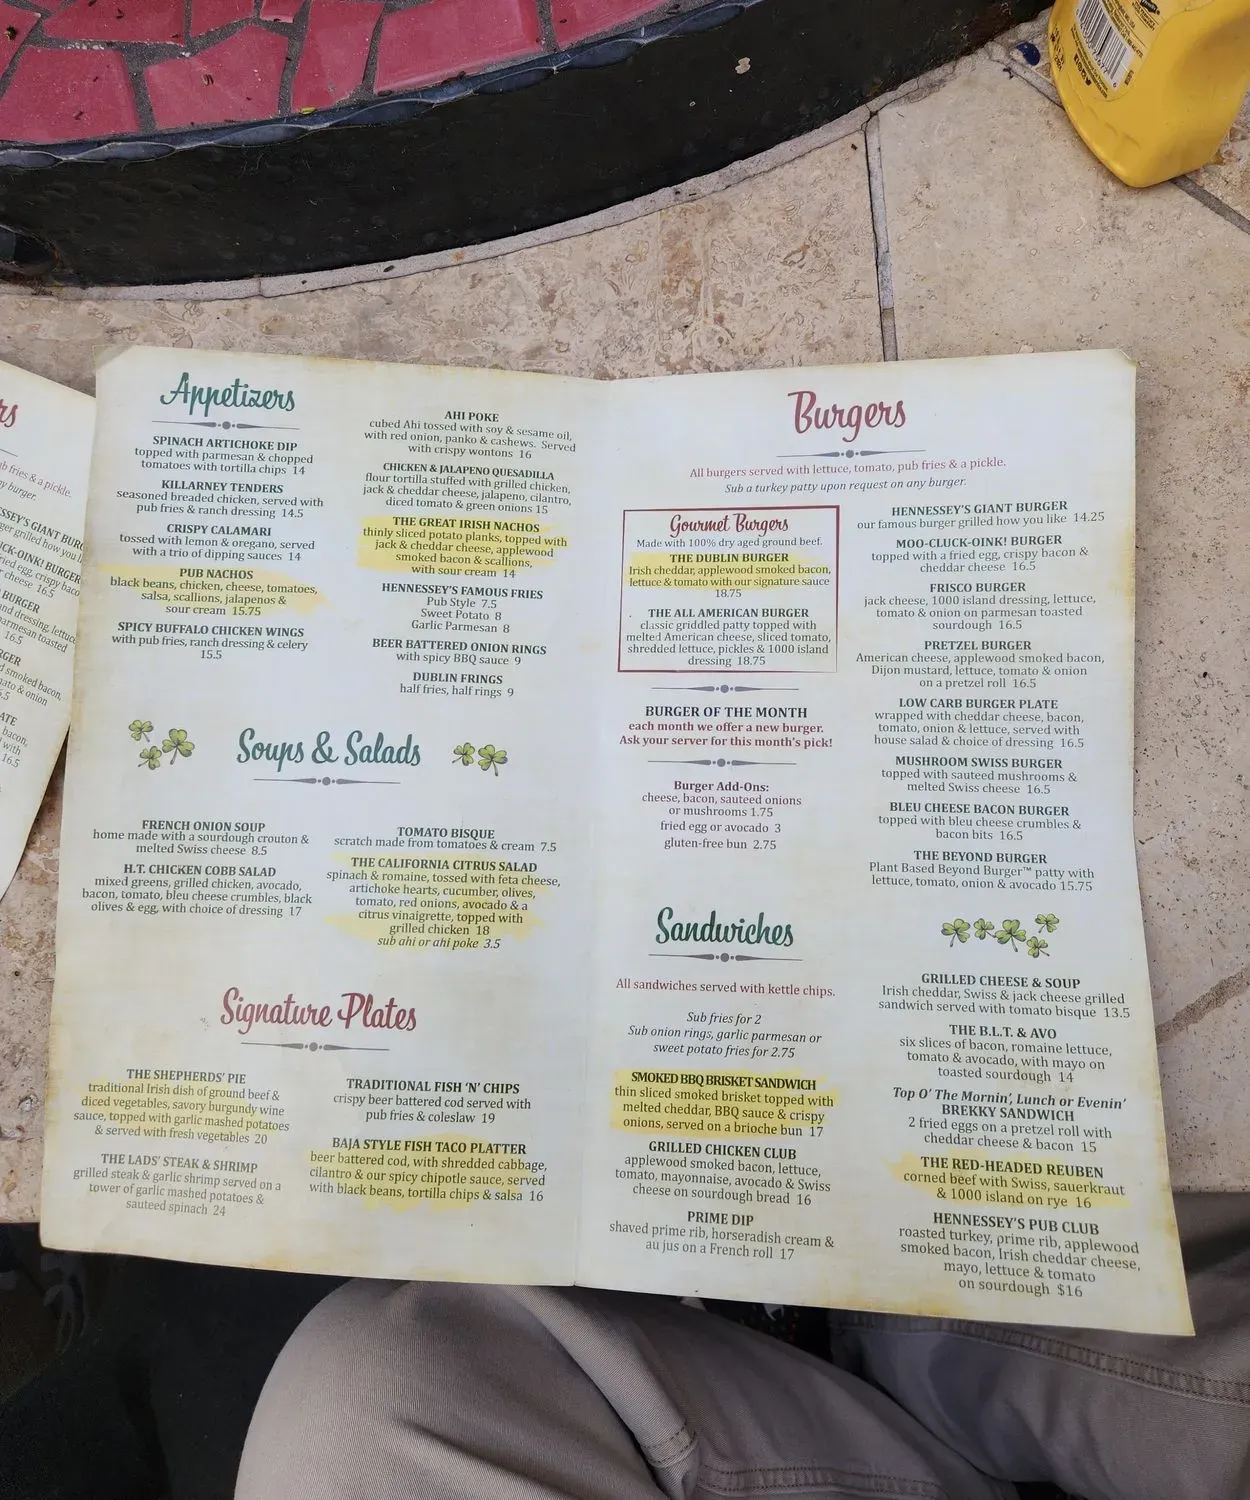 Appetizers
SPINACH ARTICHOKE DIP
topped with parmesan & chopped
tomatoes with tortilla chips 14
KILLARNEY TENDERS
seasoned breaded chicken, served with
pub fries & ranch dressing 14.5
CRISPY CALAMARI
tossed with lemon & oregano, served
with a trio of dipping sauces 14
PUB NACHOS
black beans, chicken, cheese, tomatoes,
salsa, scallions, jalapenos &
sour cream 15.75
SPICY BUFFALO CHICKEN WINGS
with pub fries, ranch dressing & celery
15.5
AHI POKE
cubed Ahi tossed with soy & sesame oil,
with red onion, panko & cashews. Served
with crispy wontons 16
CHICKEN & JALAPENO QUESADILLA
flour tortilla stuffed with grilled chicken,
jack & cheddar cheese, jalapeno, cilantro,
diced tomato & green onions 15
THE GREAT IRISH NACHOS
thinly sliced potato planks, topped with
jack & cheddar cheese, applewood
smoked bacon & scallions,
with sour cream 14
HENNESSEY'S FAMOUS FRIES
Pub Style 7.5
Sweet Potato 8
Garlic Parmesan 8
BEER BATTERED ONION RINGS
with spicy BBQ sauce 9
DUBLIN FRINGS
half fries, half rings 9
Soups & Salads
FRENCH ONION SOUP
home made with a sourdough crouton &
melted Swiss cheese 8.5
H.T. CHICKEN COBB SALAD
mixed greens, grilled chicken, avocado,
bacon, tomato, bleu cheese crumbles, black
olives & egg, with choice of dressing 17
TOMATO BISQUE
scratch made from tomatoes & cream 7.5
THE CALIFORNIA CITRUS SALAD
spinach & romaine, tossed with feta cheese,
artichoke hearts, cucumber, olives,
tomato, red onions, avocado & a
citrus vinaigrette, topped with
grilled chicken 18
sub ahi or ahi poke 3.5
Signature Plates
THE SHEPHERDS' PIE
traditional Irish dish of ground beef &
diced vegetables, savory burgundy wine
sauce, topped with garlic mashed potatoes
& served with fresh vegetables 20
THE LADS' STEAK & SHRIMP
grilled steak & garlic shrimp served on a
tower of garlic mashed potatoes &
sauteed spinach 24
TRADITIONAL FISH 'N' CHIPS
crispy beer battered cod served with
pub fries & coleslaw 19
BAJA STYLE FISH TACO PLATTER
beer battered cod, with shredded cabbage,
cilantro & our spicy chipotle sauce, served
with black beans, tortilla chips & salsa 16
Burgers
All burgers served with lettuce, tomato, pub fries & a pickle.
Sub a turkey patty upon request on any burger.
Gourmet Burgers
Made with 100% dry aged ground beef.
THE DUBLIN BURGER
Irish cheddar, applewood smoked bacon,
lettuce & tomato with our signature sauce
18.75
THE ALL AMERICAN BURGER
classic griddled patty topped with
melted American cheese, sliced tomato,
shredded lettuce, pickles & 1000 island
dressing 18.75
BURGER OF THE MONTH
each month we offer a new burger.
Ask your server for this month's pick!
Burger Add-Ons:
cheese, bacon, sauteed onions
or mushrooms 1.75
fried egg or avocado 3
gluten-free bun 2.75
HENNESSEY'S GIANT BURGER
our famous burger grilled how you like 14.25
MOO-CLUCK-OINK! BURGER
topped with a fried egg, crispy bacon &
cheddar cheese 16.5
FRISCO BURGER
jack cheese, 1000 island dressing, lettuce,
tomato & onion on parmesan toasted
sourdough 16.5
PRETZEL BURGER
American cheese, applewood smoked bacon,
Dijon mustard, lettuce, tomato & onion
on a pretzel roll 16.5
LOW CARB BURGER PLATE
wrapped with cheddar cheese, bacon,
tomato, onion & lettuce, served with
house salad & choice of dressing 16.5
MUSHROOM SWISS BURGER
topped with sauteed mushrooms &
melted Swiss cheese 16.5
BLEU CHEESE BACON BURGER
topped with bleu cheese crumbles &
bacon bits 16.5
THE BEYOND BURGER
Plant Based Beyond Burger™ patty with
lettuce, tomato, onion & avocado 15.75
Sandwiches
All sandwiches served with kettle chips.
Sub fries for 2
Sub onion rings, garlic parmesan or
sweet potato fries for 2.75
SMOKED BBQ BRISKET SANDWICH
thin sliced smoked brisket topped with
melted cheddar, BBQ sauce & crispy
onions, served on a brioche bun 17
GRILLED CHICKEN CLUB
applewood smoked bacon, lettuce,
tomato, mayonnaise, avocado & Swiss
cheese on sourdough bread 16
PRIME DIP
shaved prime rib, horseradish cream &
au jus on a French roll 17
GRILLED CHEESE & SOUP
Irish cheddar, Swiss & jack cheese grilled
sandwich served with tomato bisque 13.5
THE B.L.T. & AVO
six slices of bacon, romaine lettuce,
tomato & avocado, with mayo on
toasted sourdough 14
Top O' The Mornin', Lunch or Evenin'
BREKKY SANDWICH
2 fried eggs on a pretzel roll with
cheddar cheese & bacon 15
THE RED-HEADED REUBEN
corned beef with Swiss, sauerkraut
& 1000 island on rye 16
HENNESSEY'S PUB CLUB
roasted turkey, prime rib, applewood
smoked bacon, Irish cheddar cheese,
mayo, lettuce & tomato
on sourdough $16